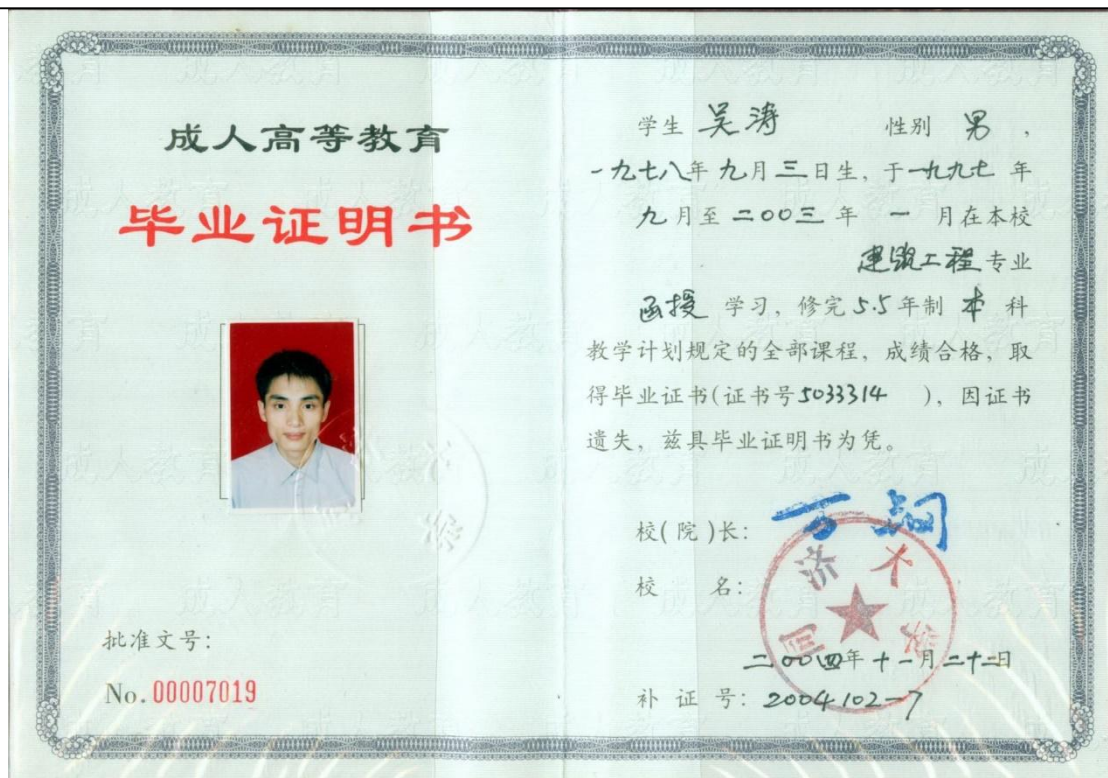 成人高等教育
毕业证明书
批准文号：
No. 00007019
学生 吴涛 性别 男 ，
一九七八年九月三日生，于一九九七 年
九月至二〇〇三 年 一 月在本校
建筑工程专业
函授 学习，修完5.5年制 本 科
教学计划规定的全部课程，成绩合格，取
得毕业证书(证书号5033314 )，因证书
遗失，兹具毕业证明书为凭。
校(院)长：万钢
校 名：
同济大学
二〇〇四年十一月二十二日
补 证 号：2004102-7